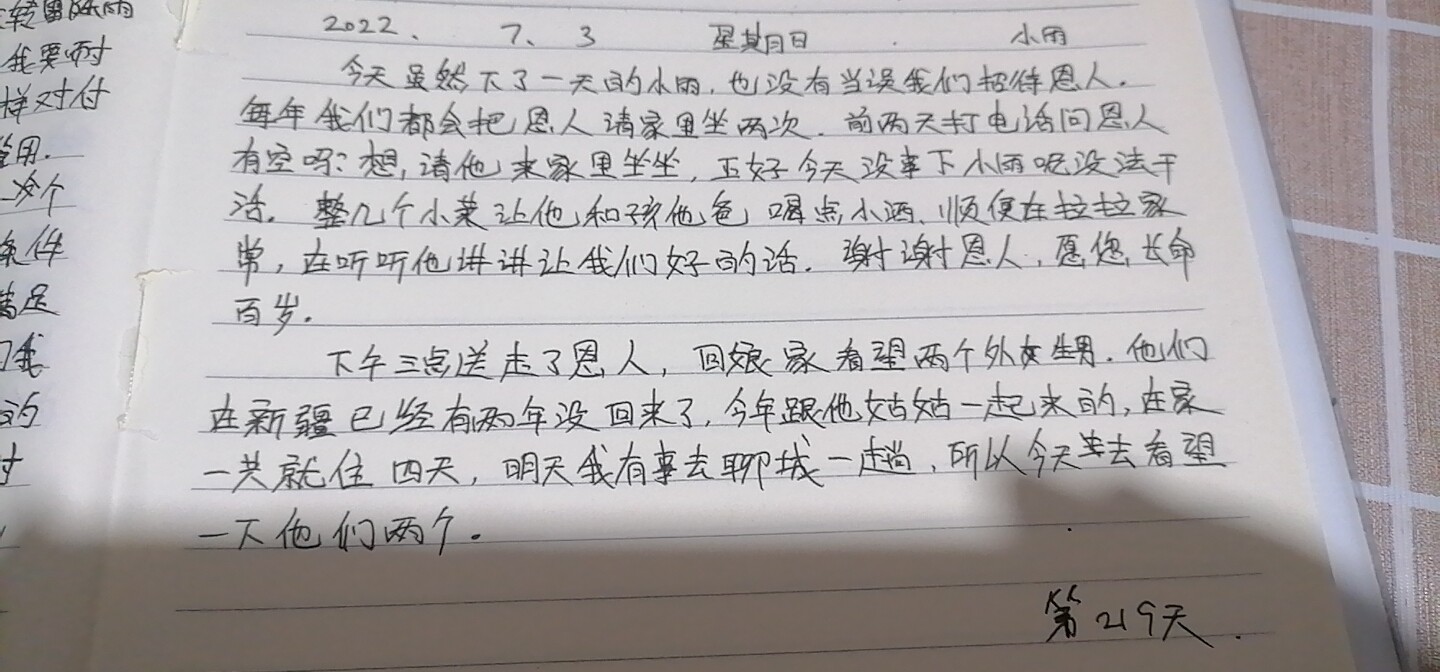 转
我要面对
样对付
用.
一个
条件
满足
们我
的
过
2022、 7、 3 星期日 小雨
今天虽然下了一天的小雨,也没有当误我们招待恩人.
每年我们都会把恩人请家里坐两次.前两天打电话问恩人
有空吗?想,请他来家里坐坐,正好今天没事下小雨呢没法干
活.整几个小菜让他和孩他爸喝点小酒、顺便在拉拉家
常,在听听他讲讲让我们好的话.谢谢恩人,愿您长命
百岁.
下午三点送走了恩人,回娘家看望两个外女生男.他们
在新疆已经有两年没回来了,今年跟他姑姑一起来的,在家
一共就住四天,明天我有事去聊城一趟,所以今天去看望
一下他们两个。
第219天.